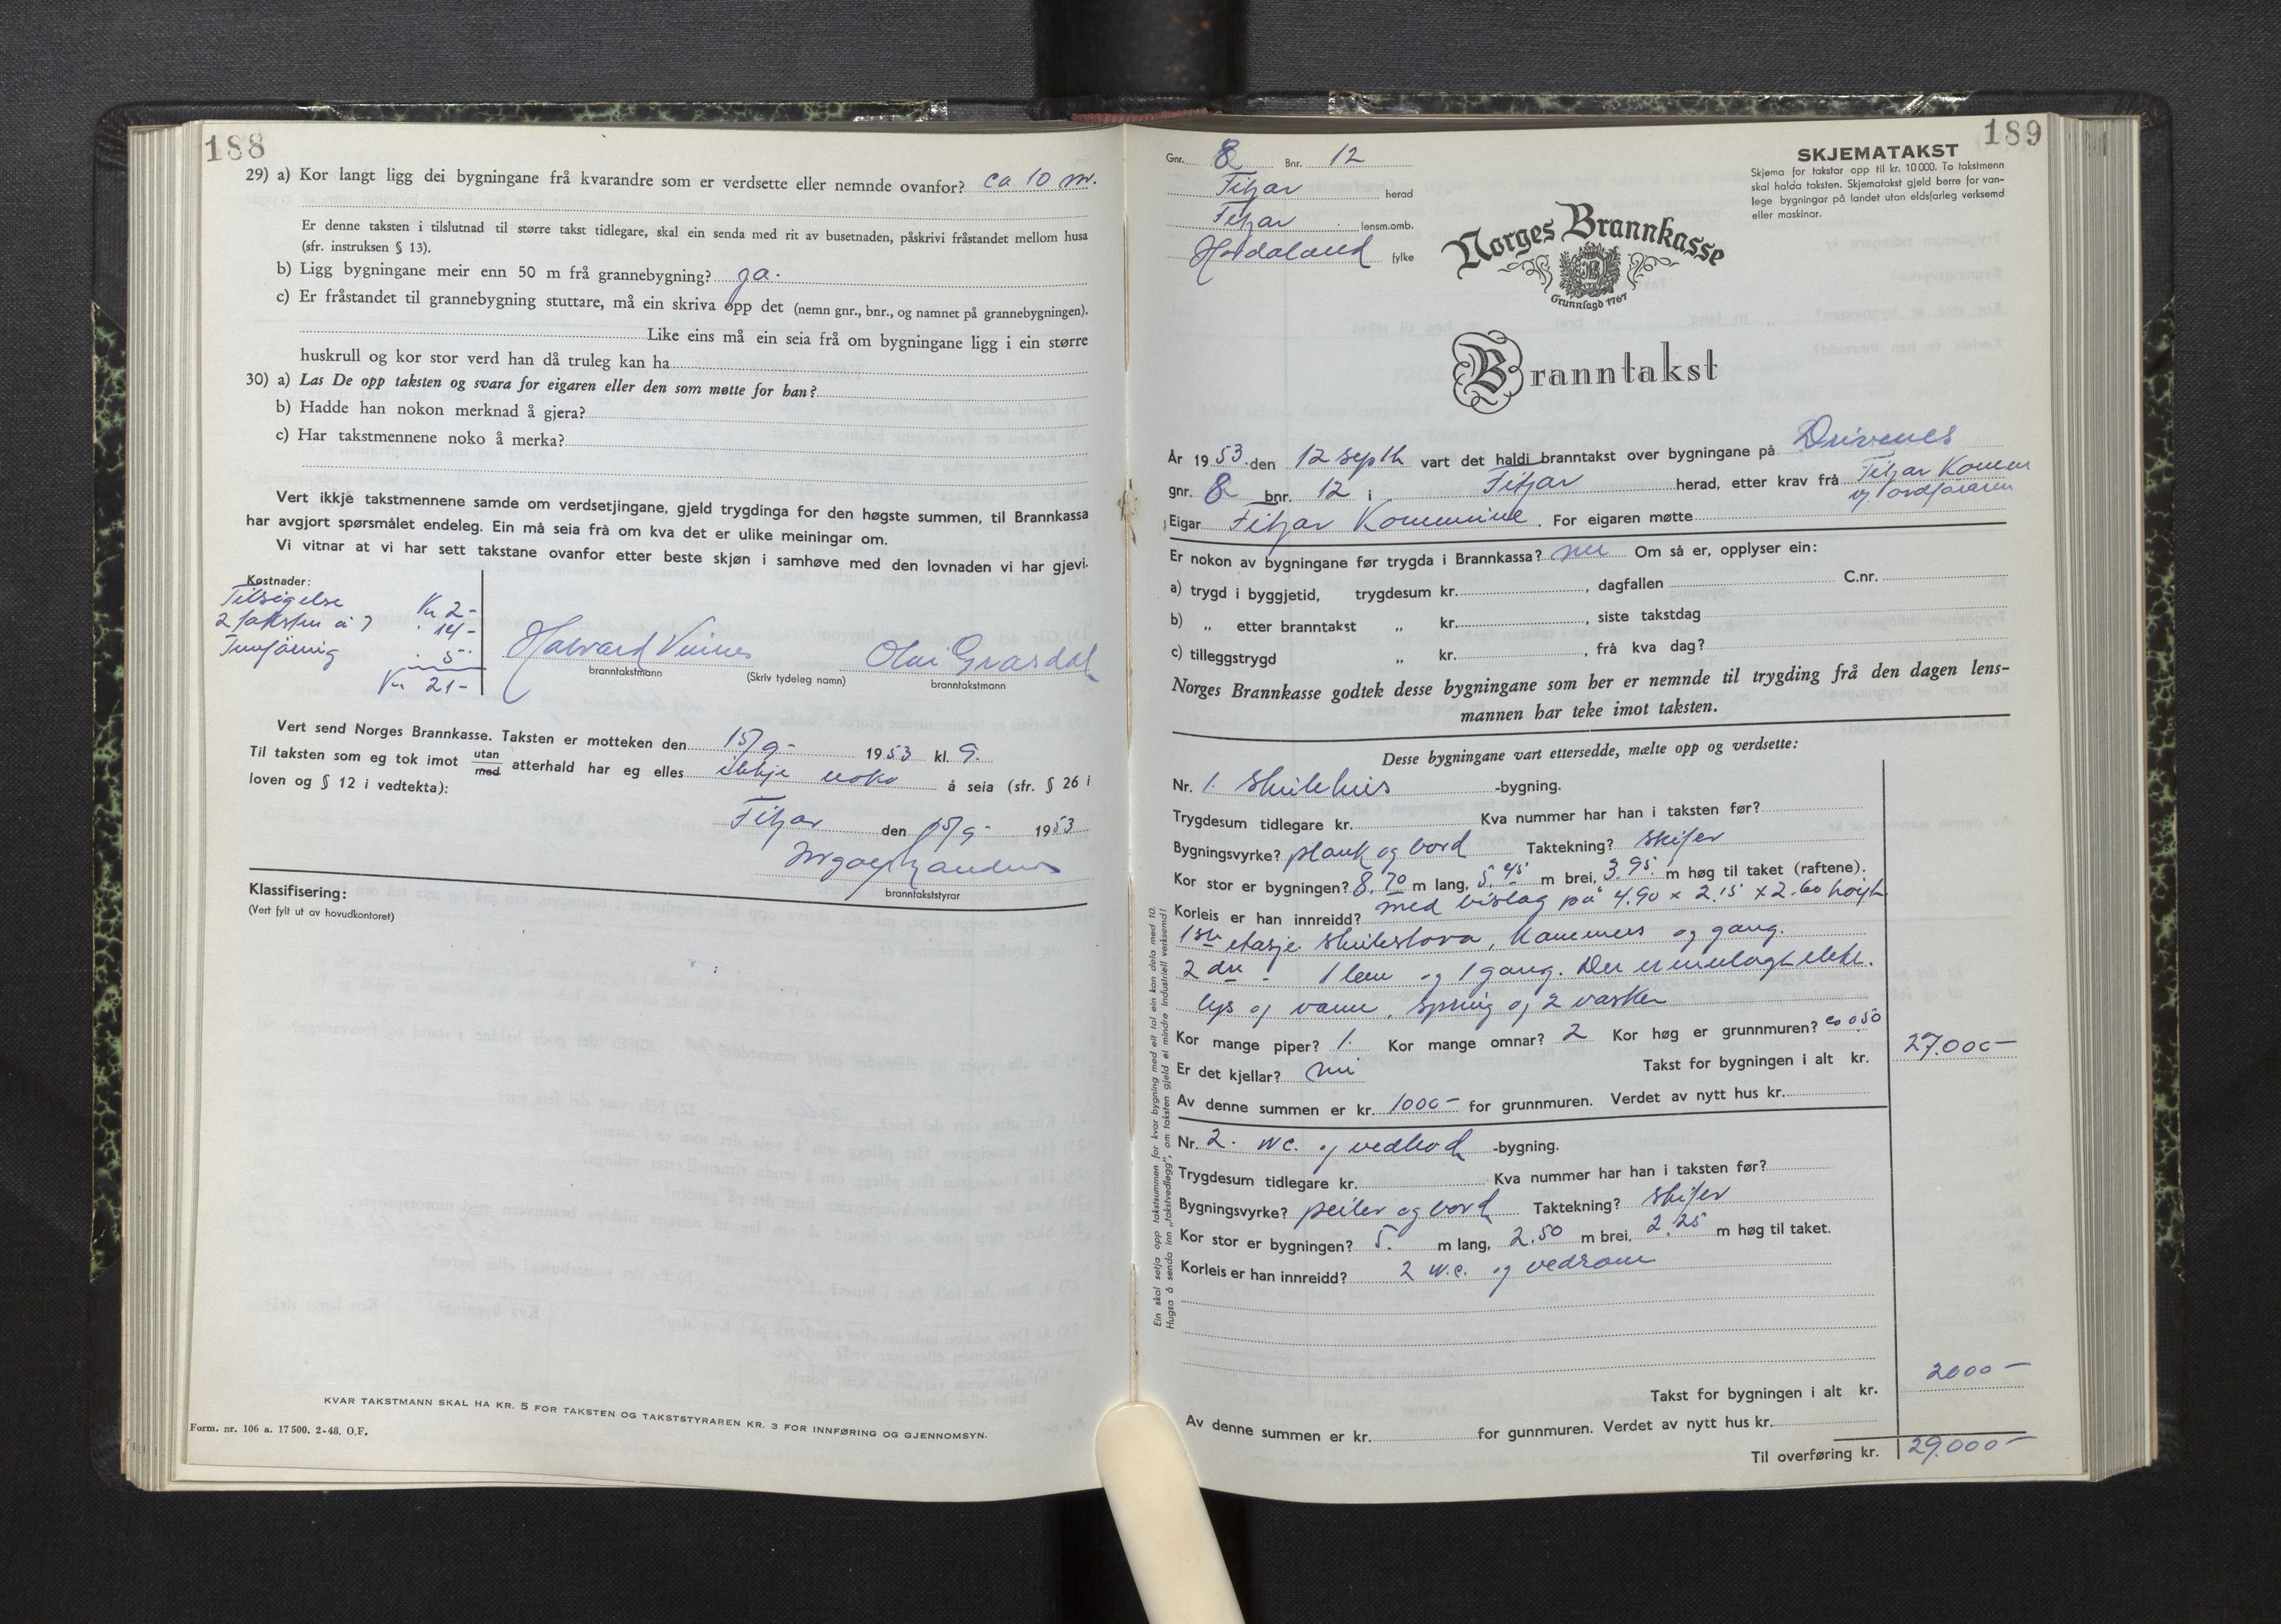 188
29) a) Kor langt ligg dei bygningane frå kvarandre som er verdsette eller nemnde ovanfor? ca 10 m.
Er denne taksten i tilslutnad til større takst tidlegare, skal ein senda med rit av busetnaden, påskrivi fråstandet mellom husa
(sfr. instruksen § 13).
b) Ligg bygningane meir enn 50 m frå grannebygning? ja.
c) Er fråstandet til grannebygning stuttare, må ein skriva opp det (nemn gnr., bnr., og namnet på grannebygningen).
Like eins må ein seia frå om bygningane ligg i ein større
huskrull og kor stor verd han då truleg kan ha
30) a) Las De opp taksten og svara for eigaren eller den som møtte for han?
b) Hadde han nokon merknad å gjera?
c) Har takstmennene noko å merka?
Vert ikkje takstmennene samde om verdsetjingane, gjeld trygdinga for den høgste summen, til Brannkassa
har avgjort spørsmålet endeleg. Ein må seia frå om kva det er ulike meiningar om.
Vi vitnar at vi har sett takstane ovanfor etter beste skjøn i samhøve med den lovnaden vi har gjevi.
Kostnader:
Tilsigelse Kr 2-
2 takster à 7 14-
Innføring 5-
Kr 21-
Halvard Vinnes
Olai Grasdal
branntakstmann (Skriv tydeleg namn) branntakstmann
Vert send Norges Brannkasse. Taksten er motteken den 15/9- 1953 kl. 9.
Til taksten som eg tok imot utan/med atterhald har eg elles ikkje noko å seia (sfr. § 26 i
loven og § 12 i vedtekta):
Fitjar den 15/9- 1953
branntakststyrar
Klassifisering:
(Vert fylt ut av hovudkontoret)
KVAR TAKSTMANN SKAL HA KR. 5 FOR TAKSTEN OG TAKSTSTYRAREN KR. 3 FOR INNFØRING OG GJENNOMSYN.
Form. nr. 106 a. 17500. 2-48. O.F.
189
Gnr. 8 Bnr. 12
Fitjar herad
Fitjar lensm.omb.
Hordaland fylke
SKJEMATAKST
Skjema for takstar opp til kr. 10000. To takstmenn
skal halda taksten. Skjematakst gjeld berre for van-
lege bygningar på landet utan eldsfarleg verksemd
eller maskinar.
Norges Brannkasse
Grunnlagd 1767
Branntakst
År 1953 den 12 septb vart det haldi branntakst over bygningane på Drivenes
gnr. 8 bnr. 12 i Fitjar herad, etter krav frå Fitjar Komm
v/ ordføraren
Eigar Fitjar Kommune. For eigaren møtte
Er nokon av bygningane før trygda i Brannkassa? nei Om så er, opplyser ein:
a) trygd i byggjetid, trygdesum kr. , dagfallen C.nr.
b) „ etter branntakst „ kr. , siste takstdag
c) tilleggstrygd „ kr. , frå kva dag?
Norges Brannkasse godtek desse bygningane som her er nemnde til trygding frå den dagen lens-
mannen har teke imot taksten.
Desse bygningane vart ettersedde, mælte opp og verdsette:
Nr. 1. Skulehus -bygning.
Trygdesum tidlegare kr. Kva nummer har han i taksten før?
Bygningsvyrke? plank og bord Taktekning? skifer
Kor stor er bygningen? 8.70 m lang, 5.45 m brei, 3.95. m høg til taket (raftene).
med bislag på 4.90 x 2.15 x 2.60 høgde
Korleis er han innreidd?
1ste etasje skulestova, kammers og gang.
2 dre - 1 lem og 1 gang. Der er innlagt elektr.
lys og vann, spring og 2 vasker
Kor mange piper? 1. Kor mange omnar? 2 Kor høg er grunnmuren? ca 0.50
Er det kjellar? nei Takst for bygningen i alt kr. 27.000-
Av denne summen er kr. 1000- for grunnmuren. Verdet av nytt hus kr.
Nr. 2. wc. og vedbod -bygning.
Trygdesum tidlegare kr. Kva nummer har han i taksten før?
Bygningsvyrke? peiler og bord Taktekning? skifer
Kor stor er bygningen? 5. m lang, 2.50 m brei, 2.25 m høg til taket.
Korleis er han innreidd? 2 w.c. og vedrom
Takst for bygningen i alt kr. 2000-
Av denne summen er kr. for gunnmuren. Verdet av nytt hus kr.
Til overføring kr. 29.000-
Ein skal setja opp takstsummen for kvar bygning med eit tal ein kan dela med 10.
Hugsa å senda inn „takstvedlegg", om taksten gjeld ei mindre industriell verksemd!